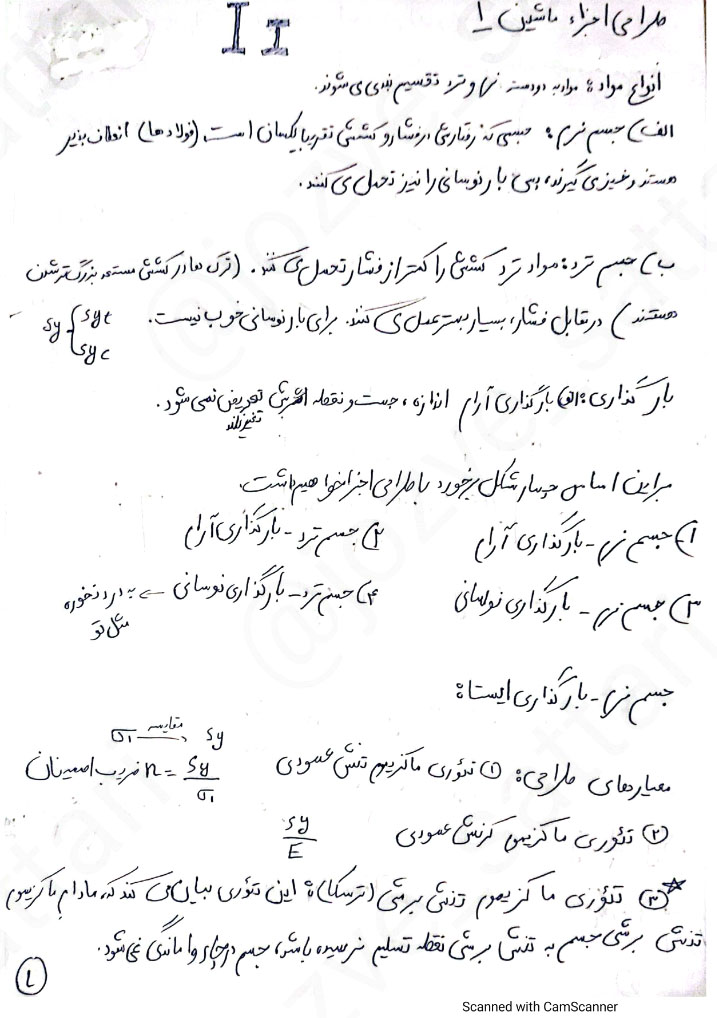 طراحی اجزاء ماشین ۱
I I
انواع مواد: مواد به دو دسته نرم و ترد تقسیم بندی می شوند.
الف) جسم نرم: جسمی که رفتارش در فشار و کششی تقریبا یکسان است. (فولادها) انعطاف پذیر
هستند و خیز می گیرند، پس بار نوسانی را نیز تحمل می کنند.
ب) جسم ترد: مواد ترد کششی را کمتر از فشار تحمل می کنند. (ترک ها در کشش مستعد بزرگ تر شدن
هستند) در مقابل فشار، بسیار بهتر عمل می کنند. برای بار نوسانی خوب نیست.
Sy { Syt
Syc
بارگذاری: الف) بارگذاری آرام اندازه، جهت و نقطه اثرش تعویض نمی شود.
تغییر
براین اساس چهار شکل برخورد با طراحی اجزا خواهیم داشت.
۱) جسم نرم - بارگذاری آرام
۲) جسم ترد - بارگذاری آرام
۳) جسم نرم - بارگذاری نوسانی
۴) جسم ترد - بارگذاری نوسانی ← به درد نخوره
مثل تو
جسم نرم - بارگذاری ایستا:
معیارهای طراحی: ① تئوری ماکزیمم تنش عمودی
σ₁ مقایسه → Sy
ضریب اطمینان n = Sy / σ₁
② تئوری ماکزیمم کرنش عمودی Sy / E
③* تئوری ماکزیمم تنش برشی (ترسکا): این تئوری بیان می کند که، مادام ماکزیمم
تنش برشی جسم به تنش برشی نقطه تسلیم نرسیده باشد، جسم دچار واماندگی نمی شود.
①
Scanned with CamScanner